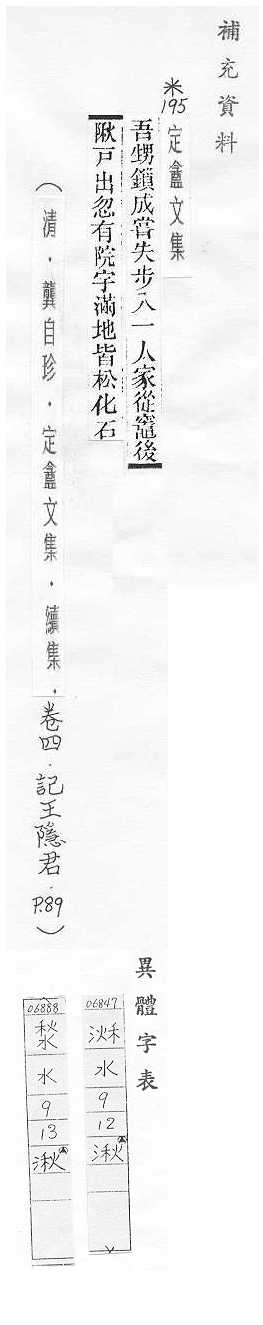 補充資料
※195 定盦文集
吾甥鎖成嘗失步入一人家從竈後
湫戸出忽有院宇滿地皆松化石
(清.龔自珍.定盦文集.續集.卷四.記王隱君.P.89)
異體字表
06847
水
9
12
湫
06888
水
9
13
湫